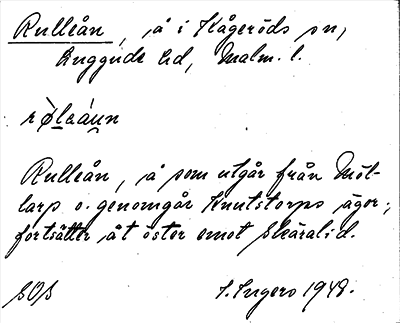 Rulleån, å i Kågeröds sn,
Luggude hd, Malm. l.
Rulleån, å som utgår från Möl-
larp o. genomgår Knutstorps ägor,
fortsätter åt öster emot Skäralid.
SOS I. Ingers 1948.